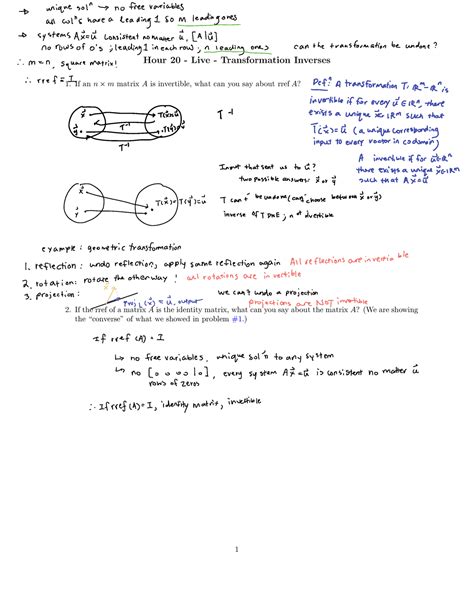 → unique solⁿ → no free variables
all col's have a leading 1 so m leading ones
→ systems Ax⃗=u⃗ consistent no matter u⃗, [A|u⃗]
no rows of 0's ; leading 1 in each row ; n leading ones
can the transformation be undone?
∴ m = n, square matrix!
Hour 20 - Live - Transformation Inverses
∴ rref = I
1. If an n × m matrix A is invertible, what can you say about rref A?
Defⁿ: A transformation T: ℝᵐ→ℝⁿ is
invertible if for every u⃗ ∈ ℝⁿ, there
exists a unique x⃗ ∈ ℝᵐ such that
T(x⃗)=u⃗ (a unique corresponding
input to every vector in codomain)
x⃗ T(x⃗)=u⃗
y⃗ T(y⃗)
T⁻¹
T⁻¹
T⁻¹
A invertible if for u⃗∈ℝⁿ
there exists a unique x⃗∈ℝᵐ
such that Ax⃗=u⃗
Input that sent us to u⃗?
two possible answers: x⃗ or y⃗
x
y
T(x⃗)=T(y⃗)=u⃗
T can't be undone (can't choose between x⃗ or y⃗)
inverse of T DNE ;
example : geometric transformation
1. reflection: undo reflection, apply same reflection again All reflections are invertible
2. rotation: rotate the other way! all rotations are invertible
3. projection: we can't undo a projection
proj (x⃗) = u⃗, output
projections are NOT invertible
2. If the rref of a matrix A is the identity matrix, what can you say about the matrix A? (We are showing
the “converse” of what we showed in problem #1.)
If rref (A) = I
↳ no free variables, unique solⁿ to any system
↳ no [0 0 0 0 | 0], every system Ax⃗=u⃗ is consistent no matter u⃗
rows of zeros
∴ If rref(A)=I, identity matrix, invertible
1